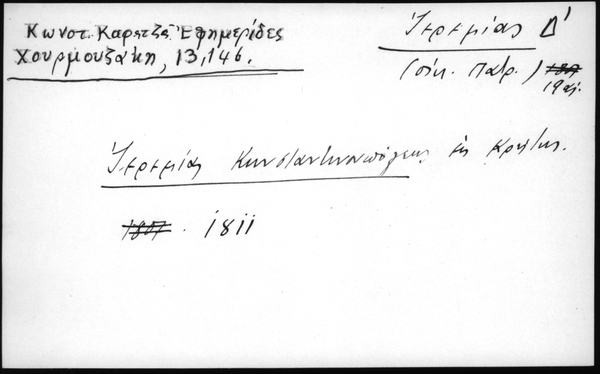 Κωνστ. Καρατζᾶ Ἐφημερίδες
Χουρμουζάκη, 13,146.
Ἱερεμίας Δ'
(οἰκ. Πατρ.)
19 αἰ.
Ἱερεμίας Κωνσταντινουπόλεως ἐκ Κρήτης.
1811